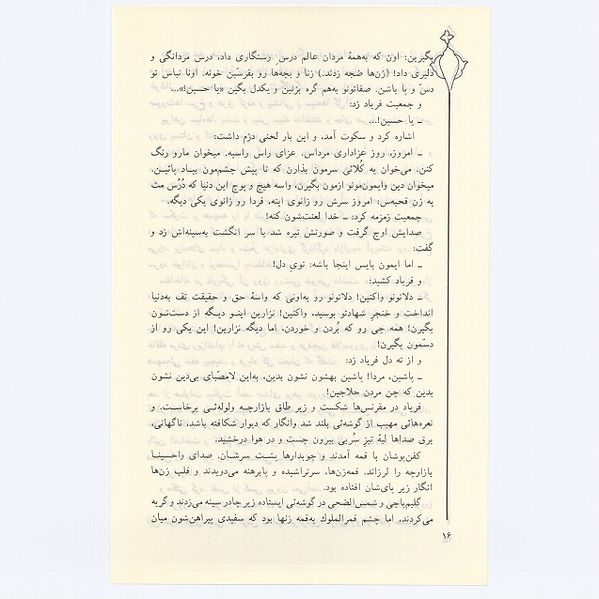 بگیرین: اون که به‌همهٔ مردان عالم درس رستگاری داد، درس مردانگی و
دلیری داد! (زن‌ها ضجه زدند.) زنا و بچه‌ها رو بفرستین خونه. اونا نباس تو
دس و پا باشن. صفاتونو به‌هم گره بزنین و یکدل بگین «یا حسین!»...
و جمعیت فریاد زد:
ـ یا حسین!...
اشاره کرد و سکوت آمد، و این بار لحنی دژم داشت:
ـ امروز، روز عزاداری مرداس. عزای راس راسیه. میخوان مارو رنگ
کنن. می‌خوان یه کُلاثی سرمون بذارن که تا پیش چشم‌مون بیاد پائین،
میخوان دین وایمون‌مونو ازمون بگیرن، واسه هیچ و پوچ این دنیا که دُرُس مث
یه زن قحبه‌س: امروز سرش رو زانوی اینه، فردا رو زانوی یکی دیگه.
جمعیت زمزمه کرد: ـ خدا لعنت‌شون کنه!
صدایش اوج گرفت و صورتش تیره شد با سر انگشت به‌سینه‌اش زد و
گفت:
ـ اما ایمون باس اینجا باشه: توی دل!
و فریاد کشید:
ـ دلاتونو واکنین! دلاتونو رو به‌اونی که واسهٔ حق و حقیقت تف به‌دنیا
انداخت و خنجر شهادتو بوسید، واکنین! نزارین اینـو دیـگه از دست‌تـون
بگیرن! همه چی رو که بُردن و خوردن، اما دیگه نزارین! این یکی رو از
دسّمون بگیرن!
و از ته دل فریاد زد:
ـ باشین، مردا! باشین بهشون نشون بدین، به‌این لامصّبای بی‌دین نشون
بدین که چن مردن حلاجین!
فریاد در مقرنس‌ها شکست و زیر طاق بازارچـه ولوله‌ئـی برخاسـت. و
نعره‌هائی مهیب از گوشه‌ئی بلند شد وانگار که دیوار شکافته باشد، ناگهانی،
برق صداها لبهٔ تیز سُربی بیرون جست و در هوا درخشید.
کفن‌پوشان با قمه آمدند و چوبدارها پشـت سرشـان. صدای واحسینـا
بازارچه را لرزاند. قمه‌زن‌ها، سرتراشیده و پابرهنه می‌دویدند و قلب زن‌ها
انگار زیر پای‌شان افتاده بود.
گلین‌باجی و شمس‌الضحی در گوشه‌ئی ایستاده زیر چادر سینه می‌زدند و گریه
می‌کردند، اما چشم قمرالملوك به‌قمه زنها بود که سفیدی پیراهن‌شون میان
۱۶